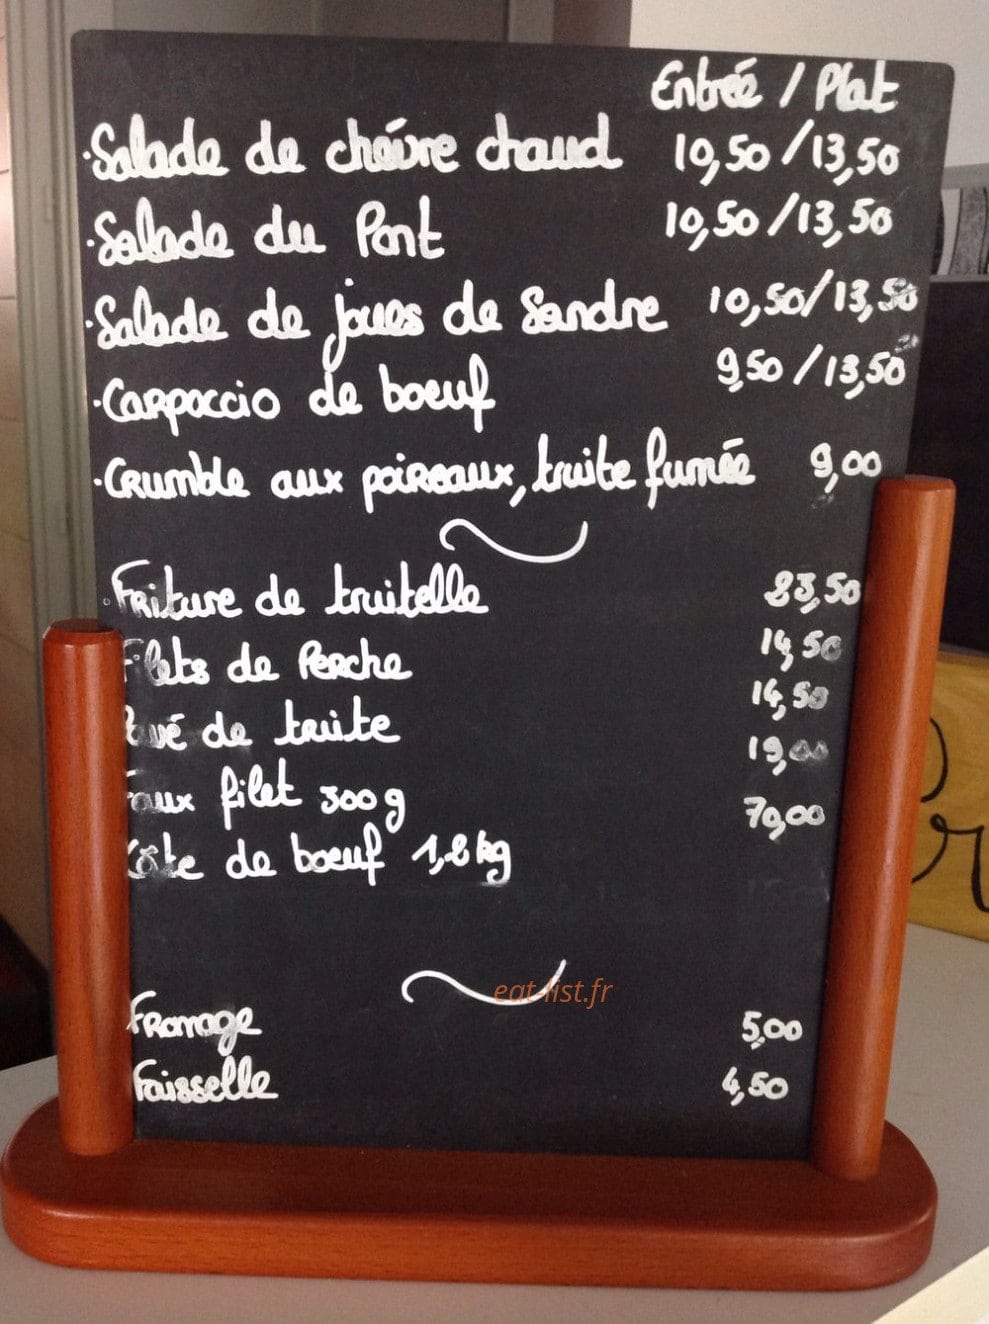 Entrée / Plat
·Salade de chèvre chaud 10,50 / 13,50
·Salade du Pont 10,50 / 13,50
·Salade de joues de Sandre 10,50 / 13,50
·Carpaccio de boeuf 9,50 / 13,50
·Crumble aux poireaux, truite fumée 9,00
·Friture de truitelle 23,50
Filets de Perche 14,50
Pavé de truite 14,50
Faux filet 300g 19,00
Côte de boeuf 1,2 kg 79,00
eat-list.fr
Fromage 5,00
Faisselle 4,50